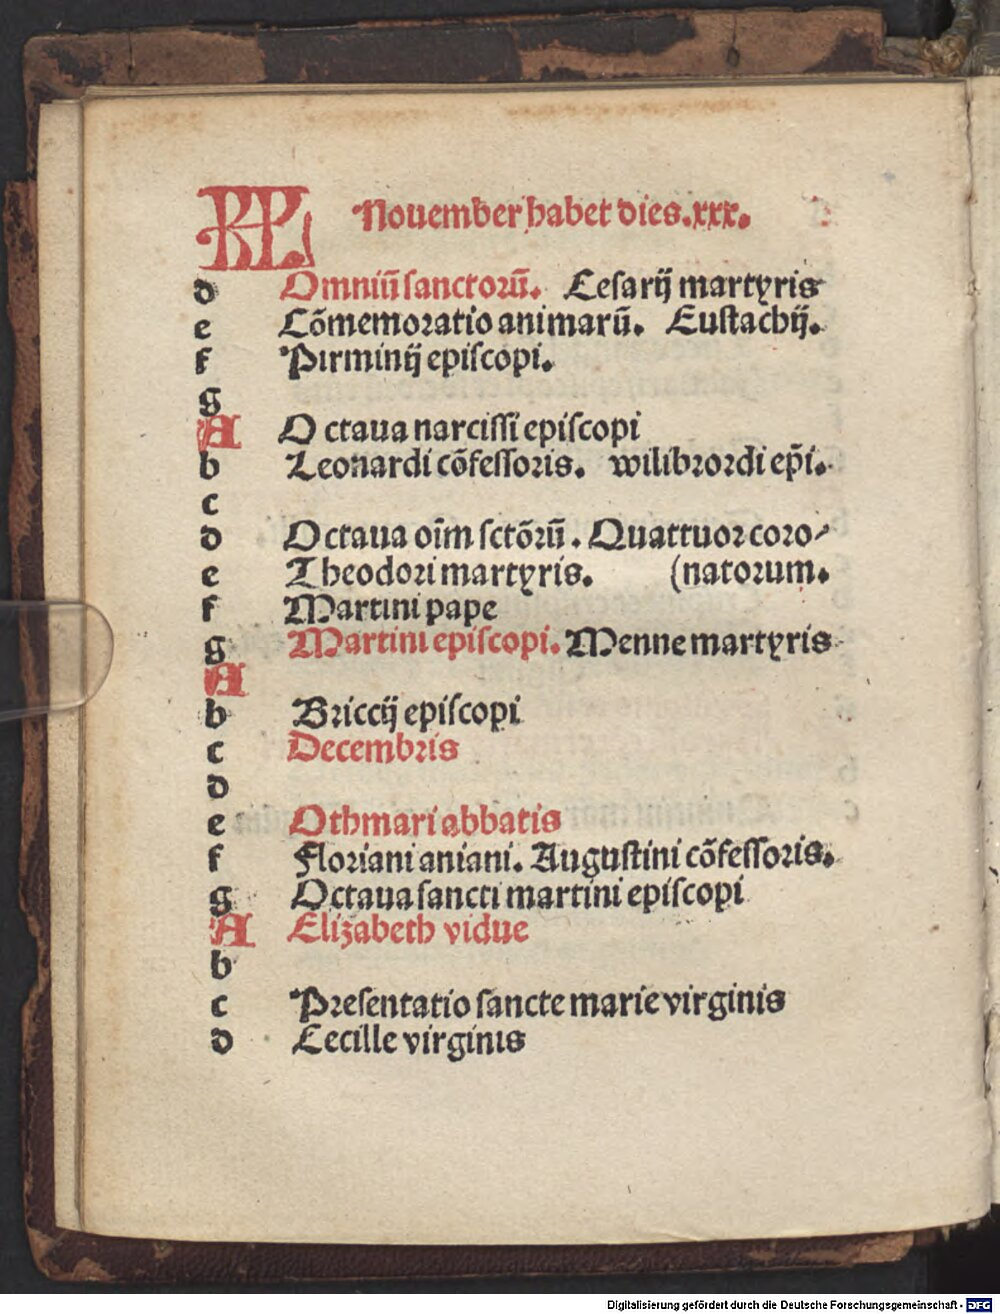 KL Nouember habet dies.xxx.
d Omniū sanctorū. Cesarij martyris
e Cōmemoratio animarū. Eustachij.
f Pirminij episcopi.
g
A Octaua narcissi episcopi
b Leonardi cōfessoris. wilibrordi ep̄i.
c
d Octaua oīm sctōrū. Quattuor coro⸗
e Theodori martyris. (natorum.
f Martini pape
g Martini episcopi. Menne martyris
A
b Briccij episcopi
c Decembris
d
e Othmari abbatis
f Floriani aniani. Augustini cōfessoris.
g Octaua sancti martini episcopi
A Elizabeth vidue
b
c Presentatio sancte marie virginis
d Cecilie virginis
Digitalisierung gefördert durch die Deutsche Forschungsgemeinschaft - DFG